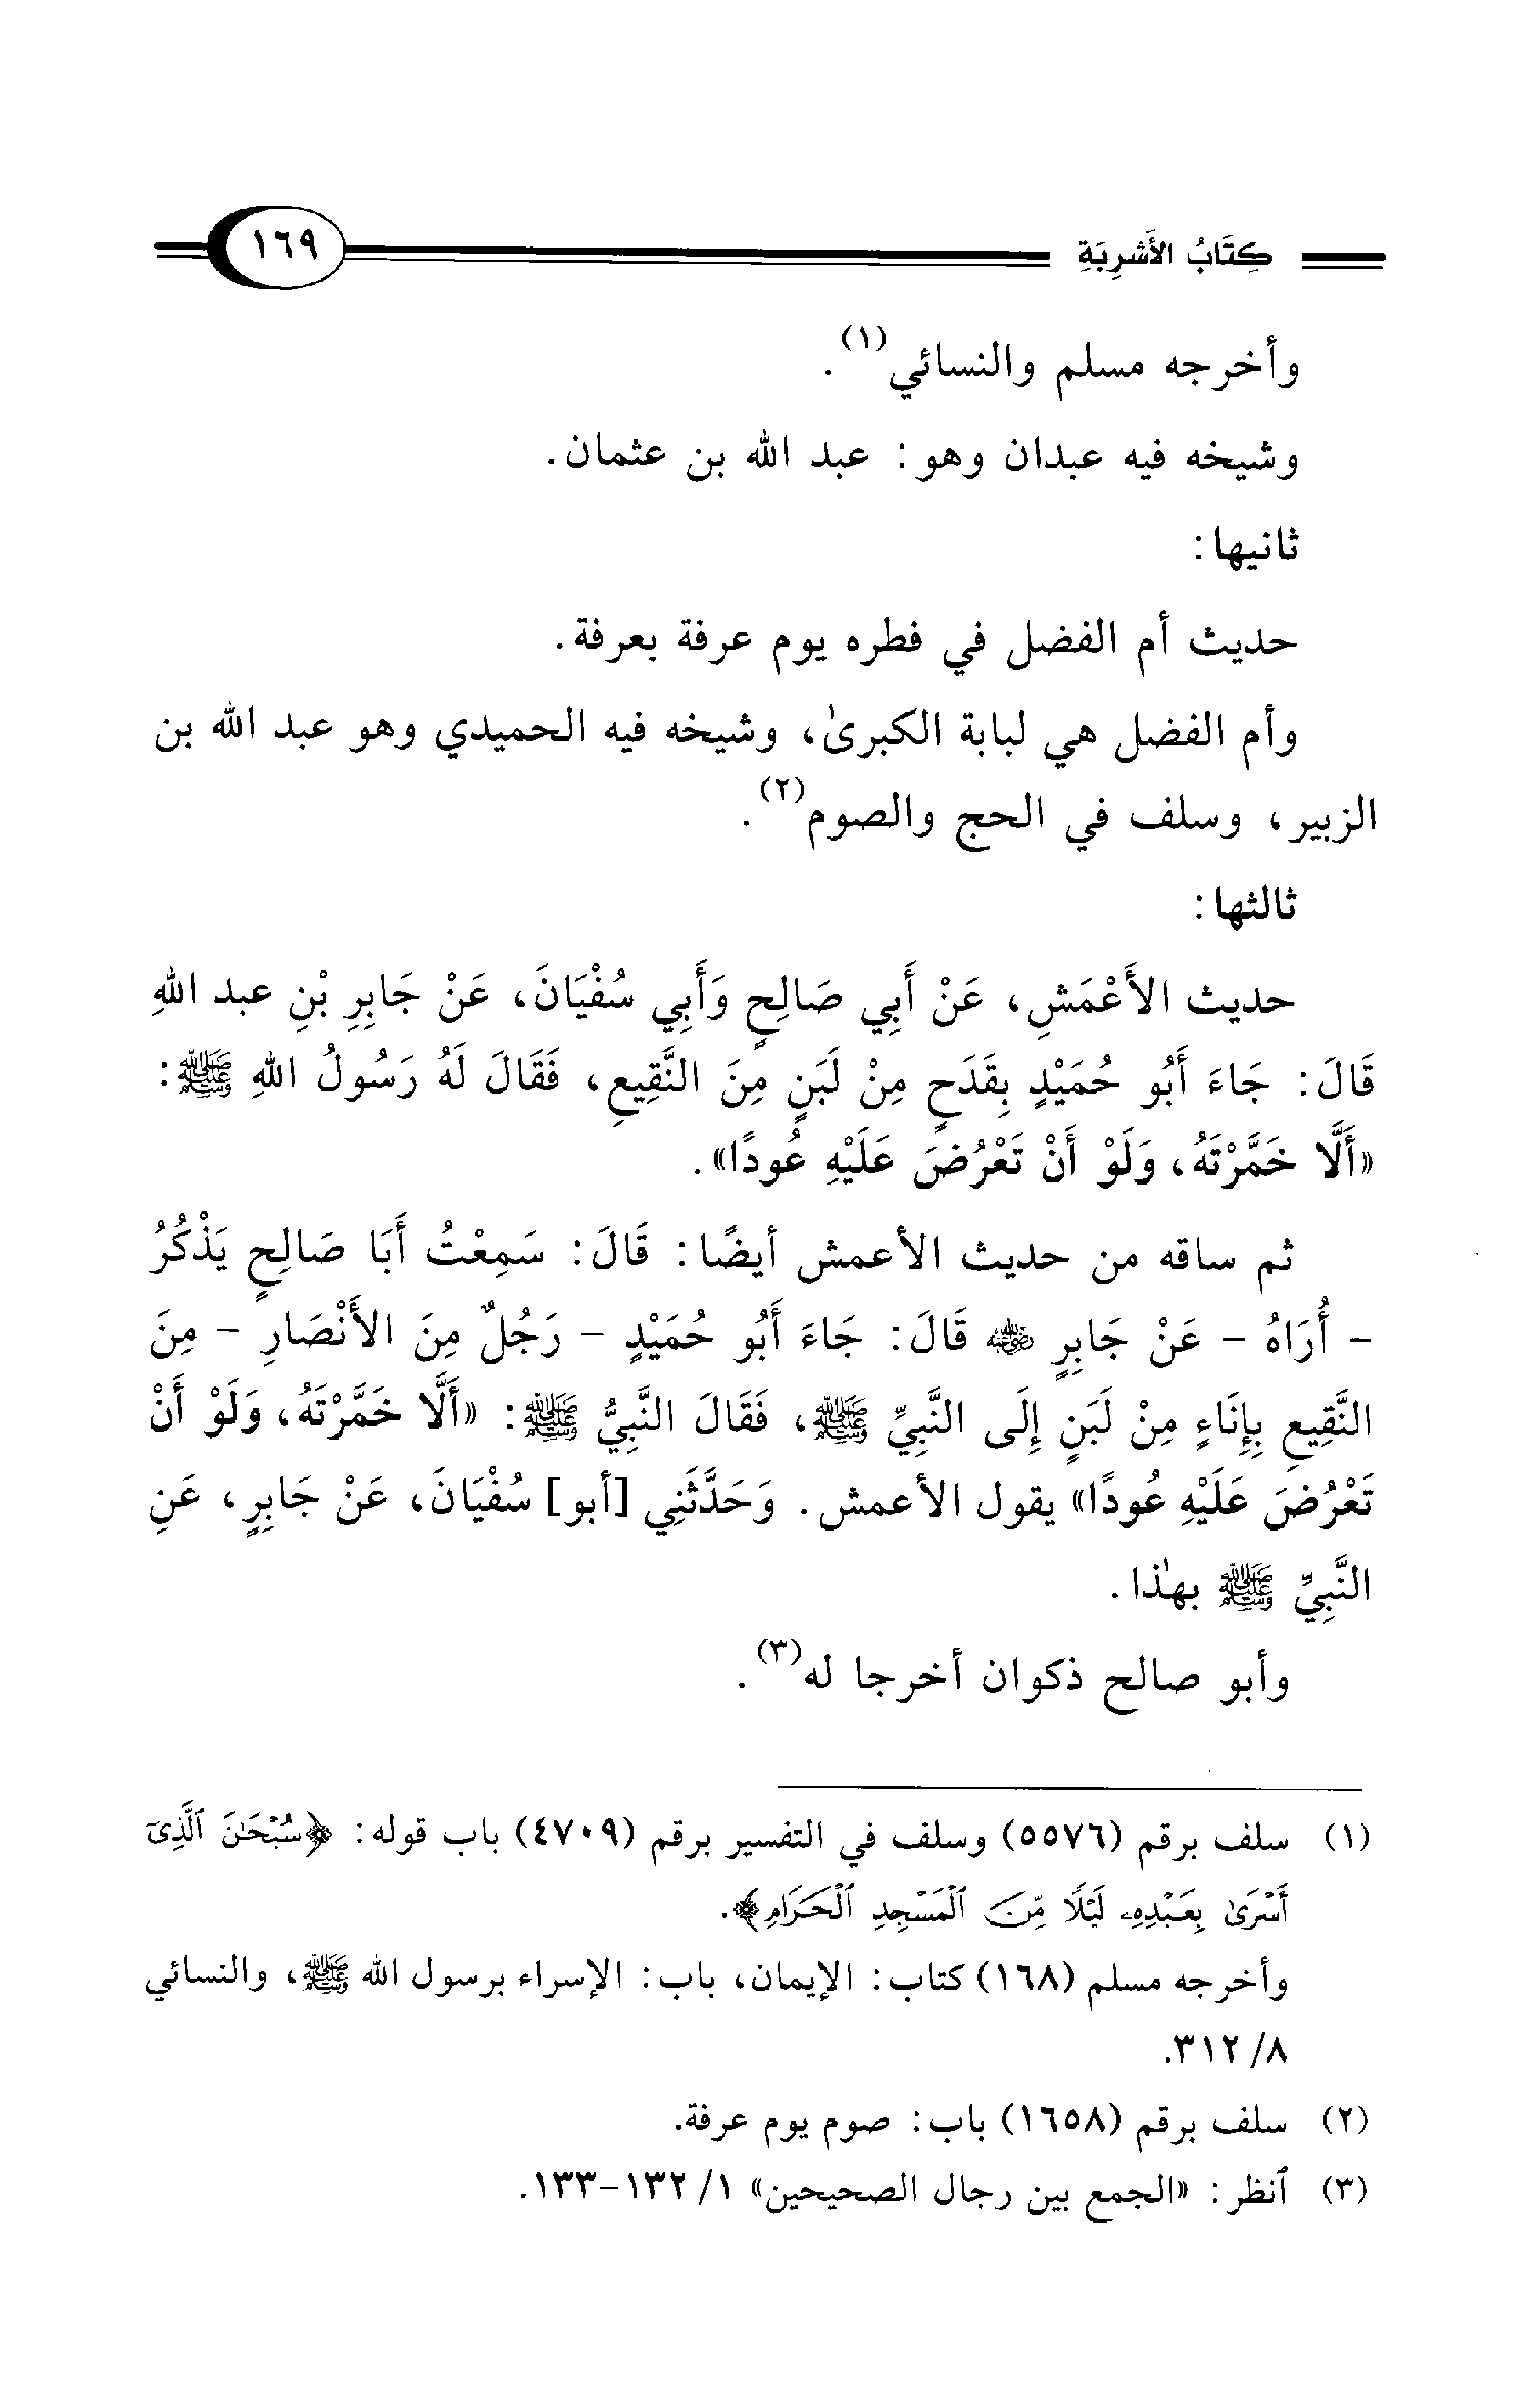 كِتَابُ الأَشْرِبَةِ ١٦٩
وأخرجه مسلم والنسائي(١).
وشيخه فيه عبدان وهو: عبد الله بن عثمان.
ثانيها:
حديث أم الفضل في فطره يوم عرفة بعرفة.
وأم الفضل هي لبابة الكبرىٰ، وشيخه فيه الحميدي وهو عبد الله بن
الزبير، وسلف في الحج والصوم(٢).
ثالثها:
حديث الأَعْمَشِ، عَنْ أَبِي صَالِحٍ وَأَبِي سُفْيَانَ، عَنْ جَابِرِ بْنِ عبد اللهِ
قَالَ: جَاءَ أَبُو حُمَيْدٍ بِقَدَحٍ مِنْ لَبَنٍ مِنَ النَّقِيعِ، فَقَالَ لَهُ رَسُولُ اللهِ ﷺ:
«أَلَّا خَمَّرْتَهُ، وَلَوْ أَنْ تَعْرُضَ عَلَيْهِ عُودًا».
ثم ساقه من حديث الأعمش أيضًا: قَالَ: سَمِعْتُ أَبَا صَالِحٍ يَذْكُرُ
- أُرَاهُ - عَنْ جَابِرٍ رضي الله عنه قَالَ: جَاءَ أَبُو حُمَيْدٍ - رَجُلٌ مِنَ الأَنْصَارِ - مِنَ
النَّقِيعِ بِإِنَاءٍ مِنْ لَبَنٍ إِلَى النَّبِيِّ ﷺ، فَقَالَ النَّبِيُّ ﷺ: «أَلَّا خَمَّرْتَهُ، وَلَوْ أَنْ
تَعْرُضَ عَلَيْهِ عُودًا» يقول الأعمش. وَحَدَّثَنِي [أبو] سُفْيَانَ، عَنْ جَابِرٍ، عَنِ
النَّبِيِّ ﷺ بهٰذا.
وأبو صالح ذكوان أخرجا له(٣).
(١) سلف برقم (٥٥٧٦) وسلف في التفسير برقم (٤٧٠٩) باب قوله: ﴿سُبْحَٰنَ ٱلَّذِىٓ
أَسْرَىٰ بِعَبْدِهِۦ لَيْلًا مِّنَ ٱلْمَسْجِدِ ٱلْحَرَامِ﴾.
وأخرجه مسلم (١٦٨) كتاب: الإيمان، باب: الإسراء برسول الله ﷺ، والنسائي
٨/ ٣١٢.
(٢) سلف برقم (١٦٥٨) باب: صوم يوم عرفة.
(٣) ٱنظر: «الجمع بين رجال الصحيحين» ١/ ١٣٢-١٣٣.